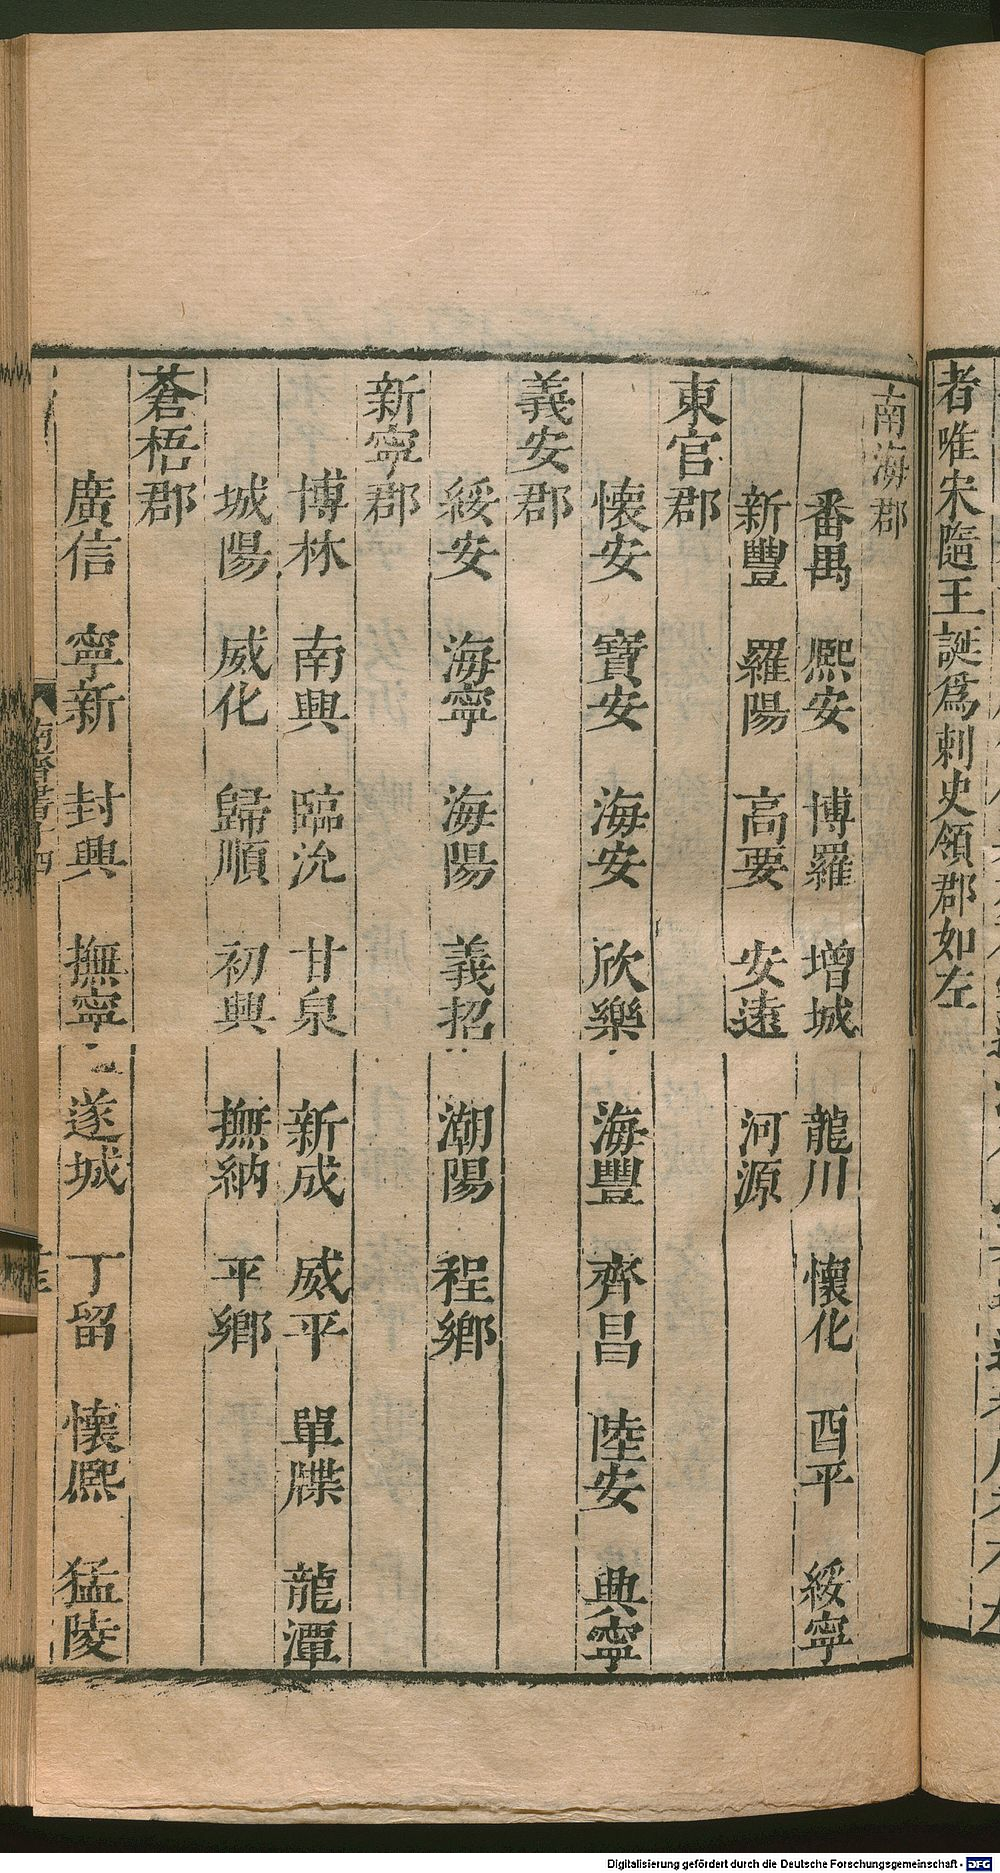 者唯宋隨王誕爲刺史領郡如左
南海郡
番禺　熙安　博羅　增城　龍川　懷化　酉平　綏寧
新豐　羅陽　高要　安遠　河源
東官郡
懷安　寶安　海安　欣樂　海豐　齊昌　陸安　興寧
義安郡
綏安　海寧　海陽　義招　潮陽　程鄉
新寧郡
博林　南興　臨沇　甘泉　新成　威平　單牒　龍潭
城陽　威化　歸順　初興　撫納　平鄉
蒼梧郡
廣信　寧新　封興　撫寧　遂城　丁留　懷熙　猛陵
Digitalisierung gefördert durch die Deutsche Forschungsgemeinschaft - DFG